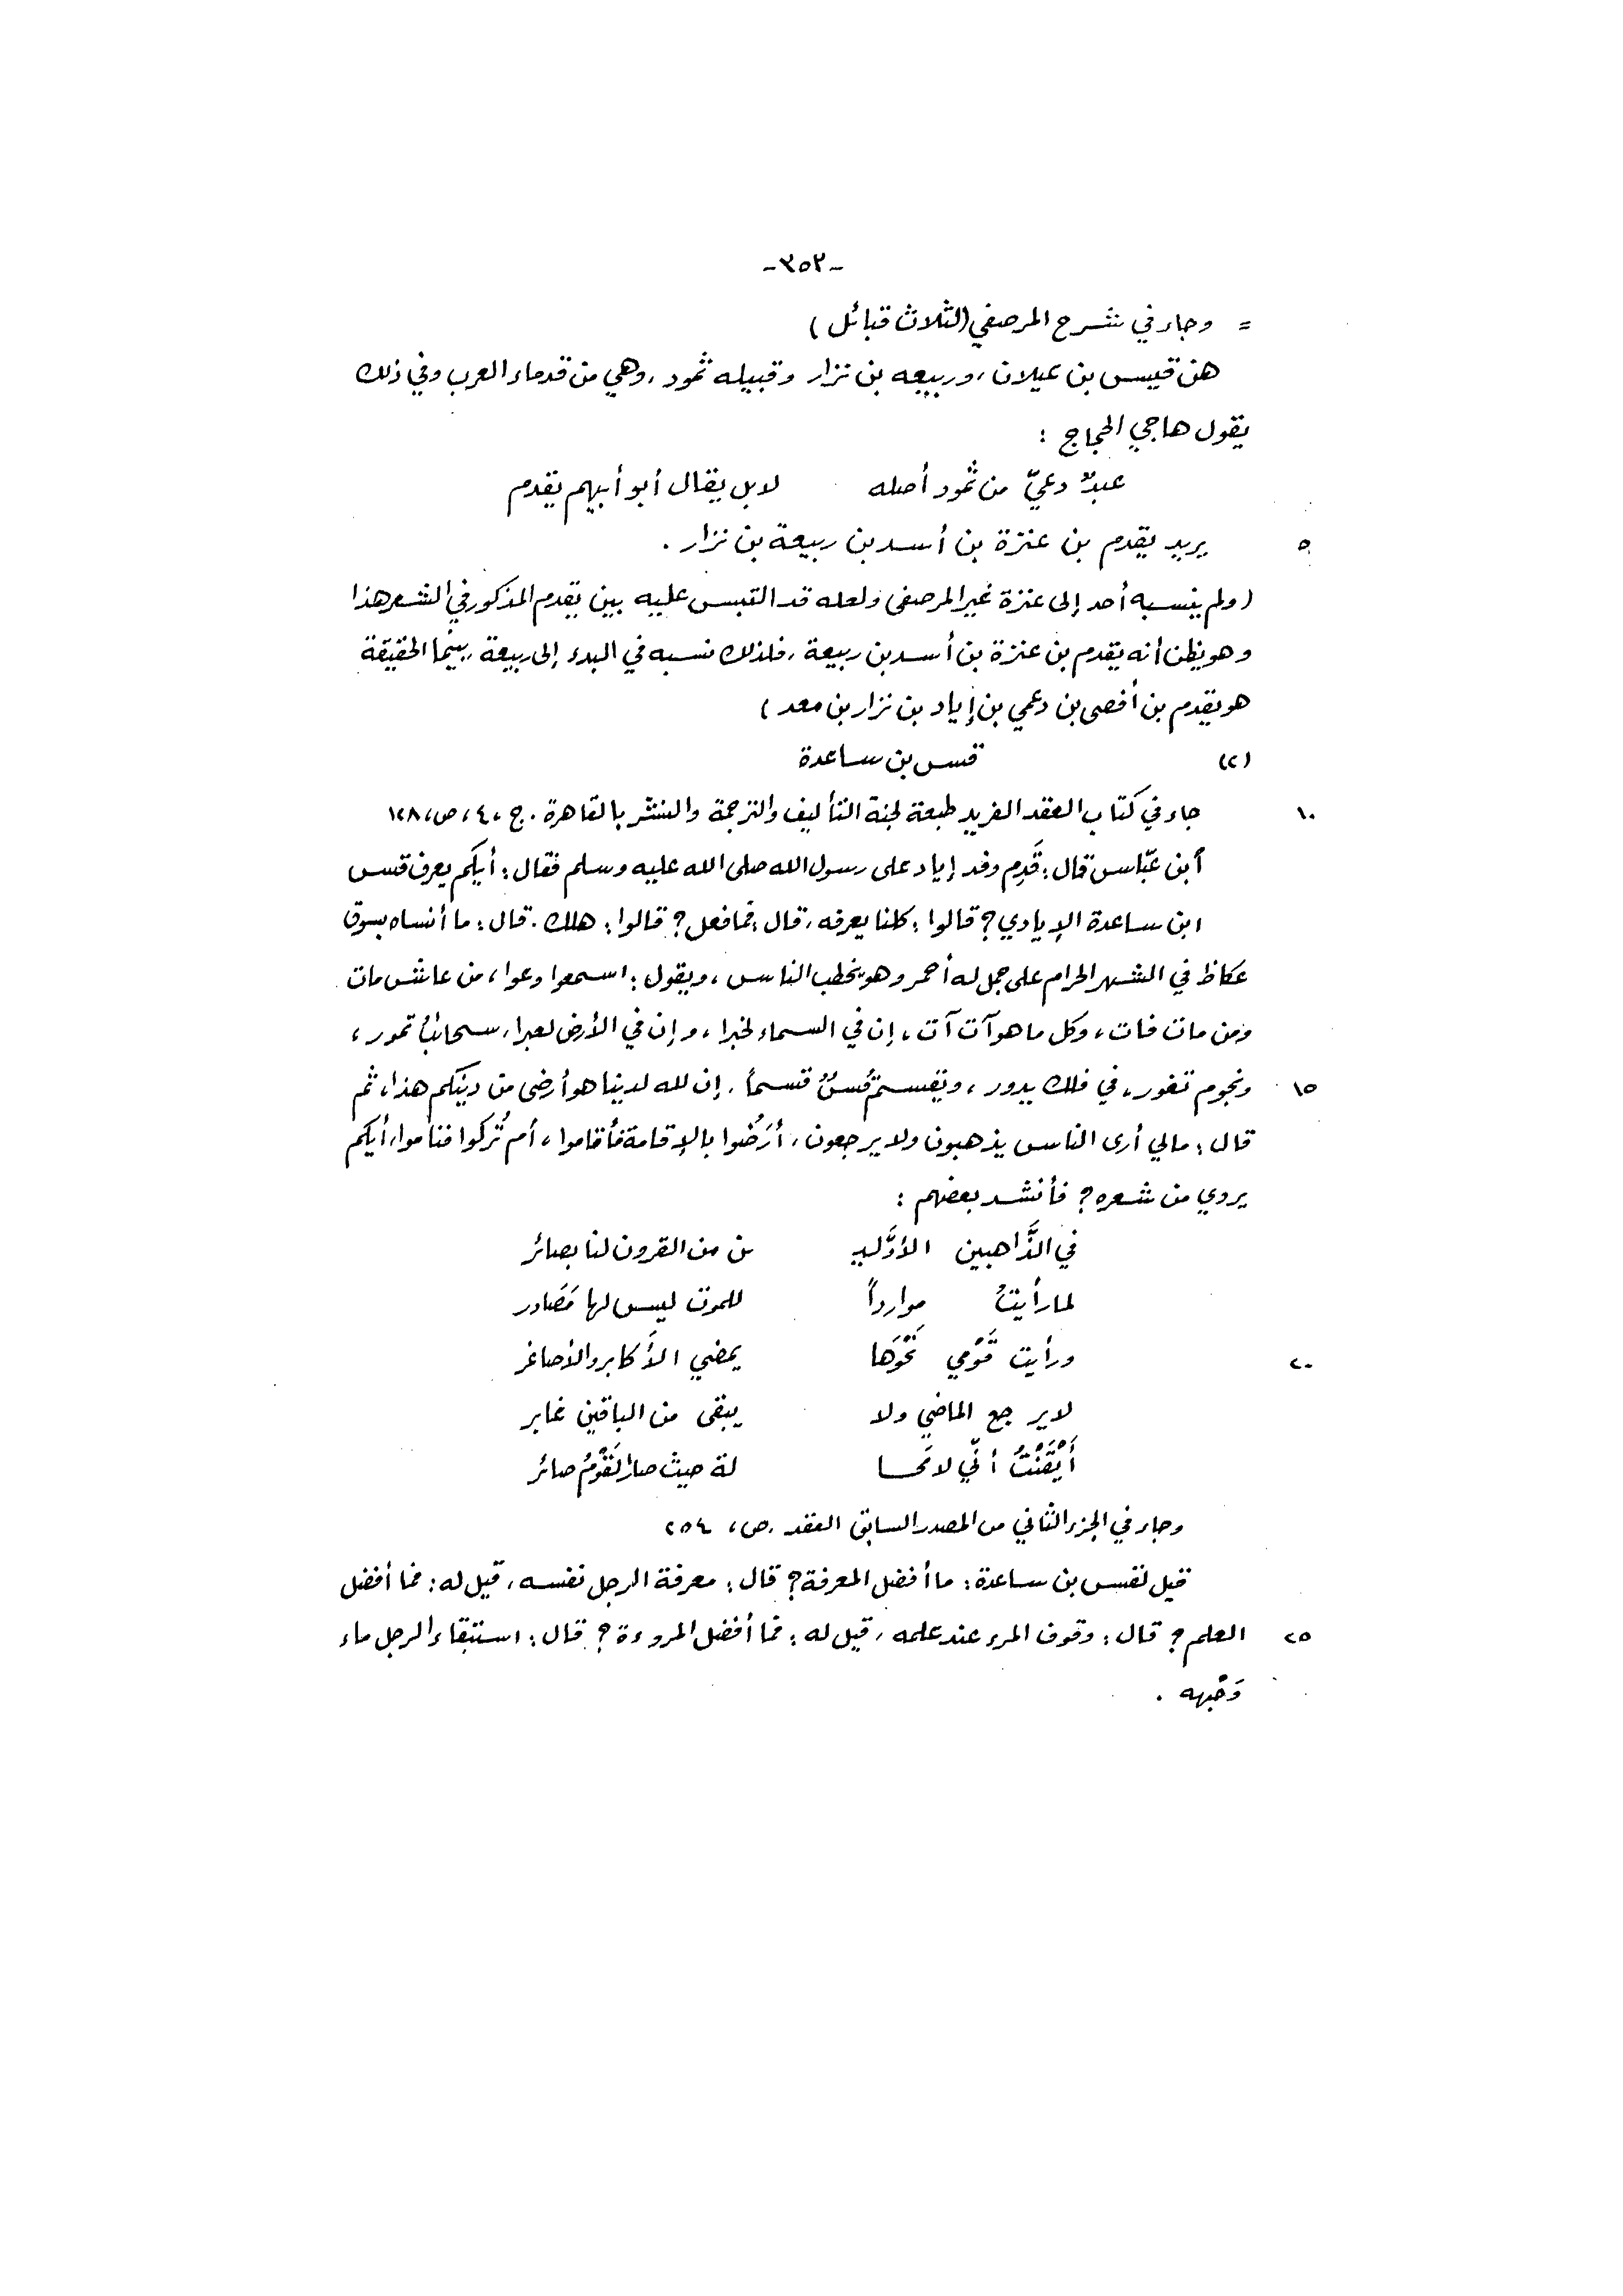 -٣٥٢-
= وجاء في شرح المرصفي (لثلاث قبائل)
هن قيس بن عيلان، وربيعه بن نزار وقبيله ثمود، وهي من قدماء العرب وفي ذلك
يقول هاجي الحجاج :
عبدٌ دعيّ من ثمود أصله لا بل يقال أبو أبيهم يقدم
٥ يريد يقدم بن عنزة بن أسد بن ربيعة بن نزار .
(ولم ينسبه أحد إلى عنزة غير المرصفى ولعله قد التبس عليه بين يقدم المذكور في الشعر هذا
وهو يظن أنه يقدم بن عنزة بن أسد بن ربيعة، فلذلك نسبه في البدء إلى ربيعة، بينما الحقيقة
هو يقدم بن أفصى بن دعمي بن إياد بن نزار بن معد)
(٢) قس بن ساعدة
١٠ جاء في كتاب العقد الفريد طبعة لجنة التأليف والترجمة والنشر بالقاهرة . ج ،٤، ص، ١٢٨
أبن عبّاس قال : قَدِم وفد إياد على رسول الله صلى الله عليه وسلم فقال : أيكم يعرف قس
ابن ساعدة الإيادي؟ قالوا : كلنا يعرفه، قال : فما فعل؟ قالوا : هلك . قال : ما أنساه بسوق
عكاظ في الشهر الحرام على جمل له أحمر وهو يخطب الناس، ويقول : اسمعوا وعوا، من عاش مات
ومن مات فات، وكل ما هو آت آت، إن في السماء لخبرا، وإن في الأرض لعبرا، سحائبُ تمور،
١٥ ونجوم تغور، في فلك يدور، ويقسم قُسٌّ قسماً، إن لله لدينا هو أرضى من دينكم هذا، ثم
قال : مالي أرى الناس يذهبون ولا يرجعون، أرَضُوا بالإقامة فأقاموا، أم تُركوا فناموا، أيكم
يروي من شعره؟ فأنشد بعضهم :
في الذَّاهبين الأوَّليـ ـن من القرون لنا بصائر
لما رأيتُ موارداً للموت ليس لها مَصَادر
٢٠ ورأيت قَوْمي نَحْوَها يمضي الأَكابر والأصاغر
لا يرجع الماضي ولا يبقى من الباقين غابر
أَيْقَنْتُ أنّي لا مَحا لة حيث صار القَوْمُ صائر
وجاء في الجزء الثاني من المصدر السابق العقد . ص، ٢٥٤
قيل لقس بن ساعدة : ما أفضل المعرفة؟ قال : معرفة الرجل نفسه، قيل له : فما أفضل
٢٥ العلم؟ قال : وقوف المرء عند علمه، قيل له : فما أفضل المروءة؟ قال : استبقاء الرجل ماء
وَجْهه .